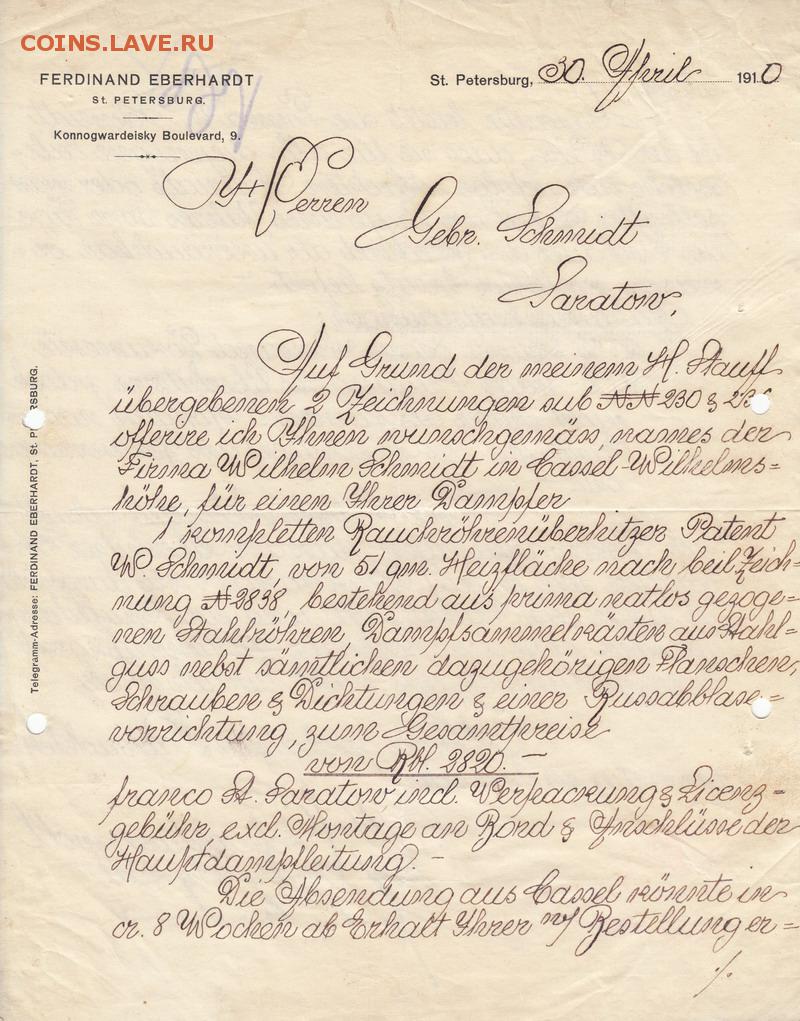 COINS.LAVE.RU
FERDINAND EBERHARDT
ST. PETERSBURG.
Konnogwardeisky Boulevard, 9.
St. Petersburg, 30. April 1910
Herren
Gebr. Schmidt
Saratow,
Auf Grund der meinem H. Stauff
übergebenen 2 Zeichnungen sub NN 230 &
offerire ich Ihnen wunschgemäss, names der
Firma Wilhelm Schmidt in Cassel-Wilhelms=
höhe, für einen Ihrer Dampfer
1 kompletten Rauchröhrenüberhitzer Patent
W. Schmidt, von 51 qm. Heizfläche nach beil. Zeich=
nung N 2838, bestehend aus prima natlos gezoge=
nen Stahlröhren, Dampfsammelkästen aus Stahl=
guss nebst sämtlichen dazugehörigen Flanschen,
Schrauben & Dichtungen & einer Russabblase=
vorrichtung, zum Gesamtpreise
von Rbl. 2820.—
franco St. Saratow, incl. Verpackung & Licenz=
gebühr, excl. Montage an Bord & Anschlüsse der
Hauptdampfleitung.—
Die Absendung aus Cassel könnte in
cr. 8 Wochen ab Erhalt Ihrer w/ Bestellung er=
./.
Telegramm-Adresse: FERDINAND EBERHARDT, St. PETERSBURG.